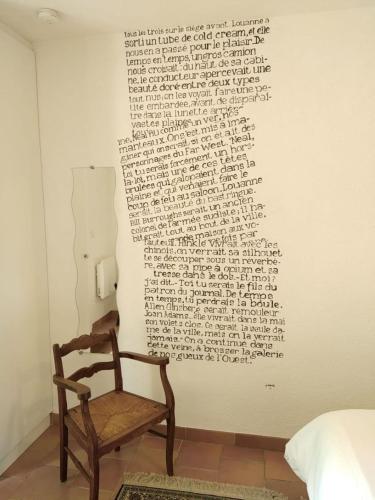 tous les trois sur le siège avant. Louanne a
sorti un tube de cold cream, et elle
nous en a passé pour le plaisir. De
temps en temps, un gros camion
nous croisait: du haut de sa cabi-
ne, le conducteur apercevait une
beauté dorée entre deux types
tout nus; on les voyait faire une pe-
tite embardée, avant de disparaî-
tre dans la lunette arrière.
vastes plaines un ver, nos
comme on
manteaux. On s'est mis à ima-
giner qui on serait, si on était des
personnages du Far West. "Neal,
toi tu serais forcément un hors-
la-loi, mais une de ces têtes
brûlées qui galopaient dans la
plaine et qui venaient faire le
coup de feu au saloon. Louanne
serait la beauté du bastringue.
Bill Burroughs serait un ancien
colonel de l'armée sudiste; il ha-
biterait tout au bout de la ville,
grande maison aux vo-
fois par
fauteuil. Hinkle vivrait avec les
chinois, on verrait sa silhouet
te se découper sous un réverbè-
re, avec sa pipe à opium et sa
tresse dans le dos. - Et moi?
j'ai dit. - Toi tu serais le fils du
patron du journal. De temps
en temps, tu perdrais la boule.
Allen Ginsberg serait rémouleur
Joan Adams... elle vivrait dans la mai
son volets clos. Ce serait la seule da-
me de la ville, mais on la verrait
jamais." On a continué dans
cette veine, à brosser la galerie
de nos gueux de l'Ouest.